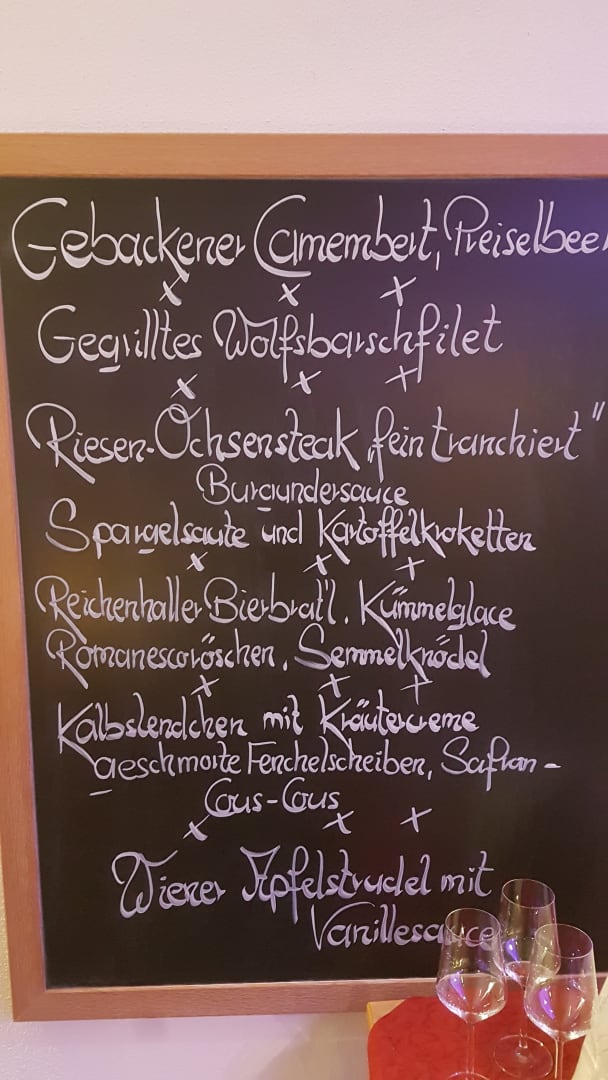 Gebackener Camembert, Preiselbeer
x x x
Gegrilltes Wolfsbarschfilet
x x x
Riesen-Ochsensteak „fein tranchiert"
Burgundersauce
Spargelsaute und Kartoffelkroketten
x x x
Reichenhaller Bierbrat'l, Kümmelglace
Romanescoröschen, Semmelknödel
x x x
Kalbslendchen mit Kräutercreme
geschmorte Fenchelscheiben, Safran-
Cous-Cous
x x x
Wiener Apfelstrudel mit
Vanillesauce